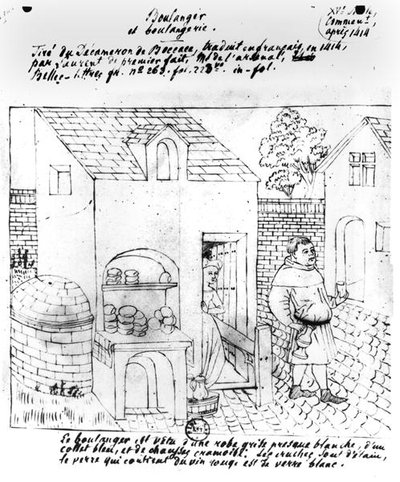 Boulanger
et boulangerie.
XVe Siècle
Commenct,
après 1414
Tiré du Décameron de Boccace, traduit en français, en 1414,
par Laurent de premier fait, Mt de l'arsenal,
Belles-lettres fr. no 263. fol. in-fol.
Le boulanger, est vetu d'une robe grise presque blanche, d'un
collet bleu, et de chausses chamois. Les cruches sont d'étain,
le verre qui contient du vin rouge est de verre blanc.